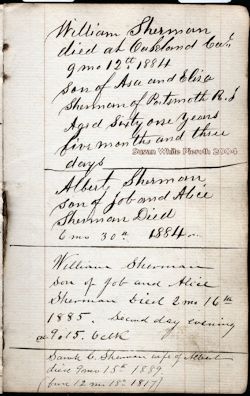 William Sherman
died at Oakland Cal
9 mo 12th 1884
son of Asa and Eliza
Sherman of Portsmoth R.I
Aged Sixty one years
five months and three
days
Susan White Pieroth 2004
Albert Sherman
son of Job and Alice
Sherman Died
6 mo 30th 1884
William Sherman
son of Job and Alice
Sherman Died 2 mo 16th
1885. Second day evening
at 9.15.
Sarah C. Sherman wife of Albert
died 9 mo 15th 1889
(born 12 mo 18th 1817)